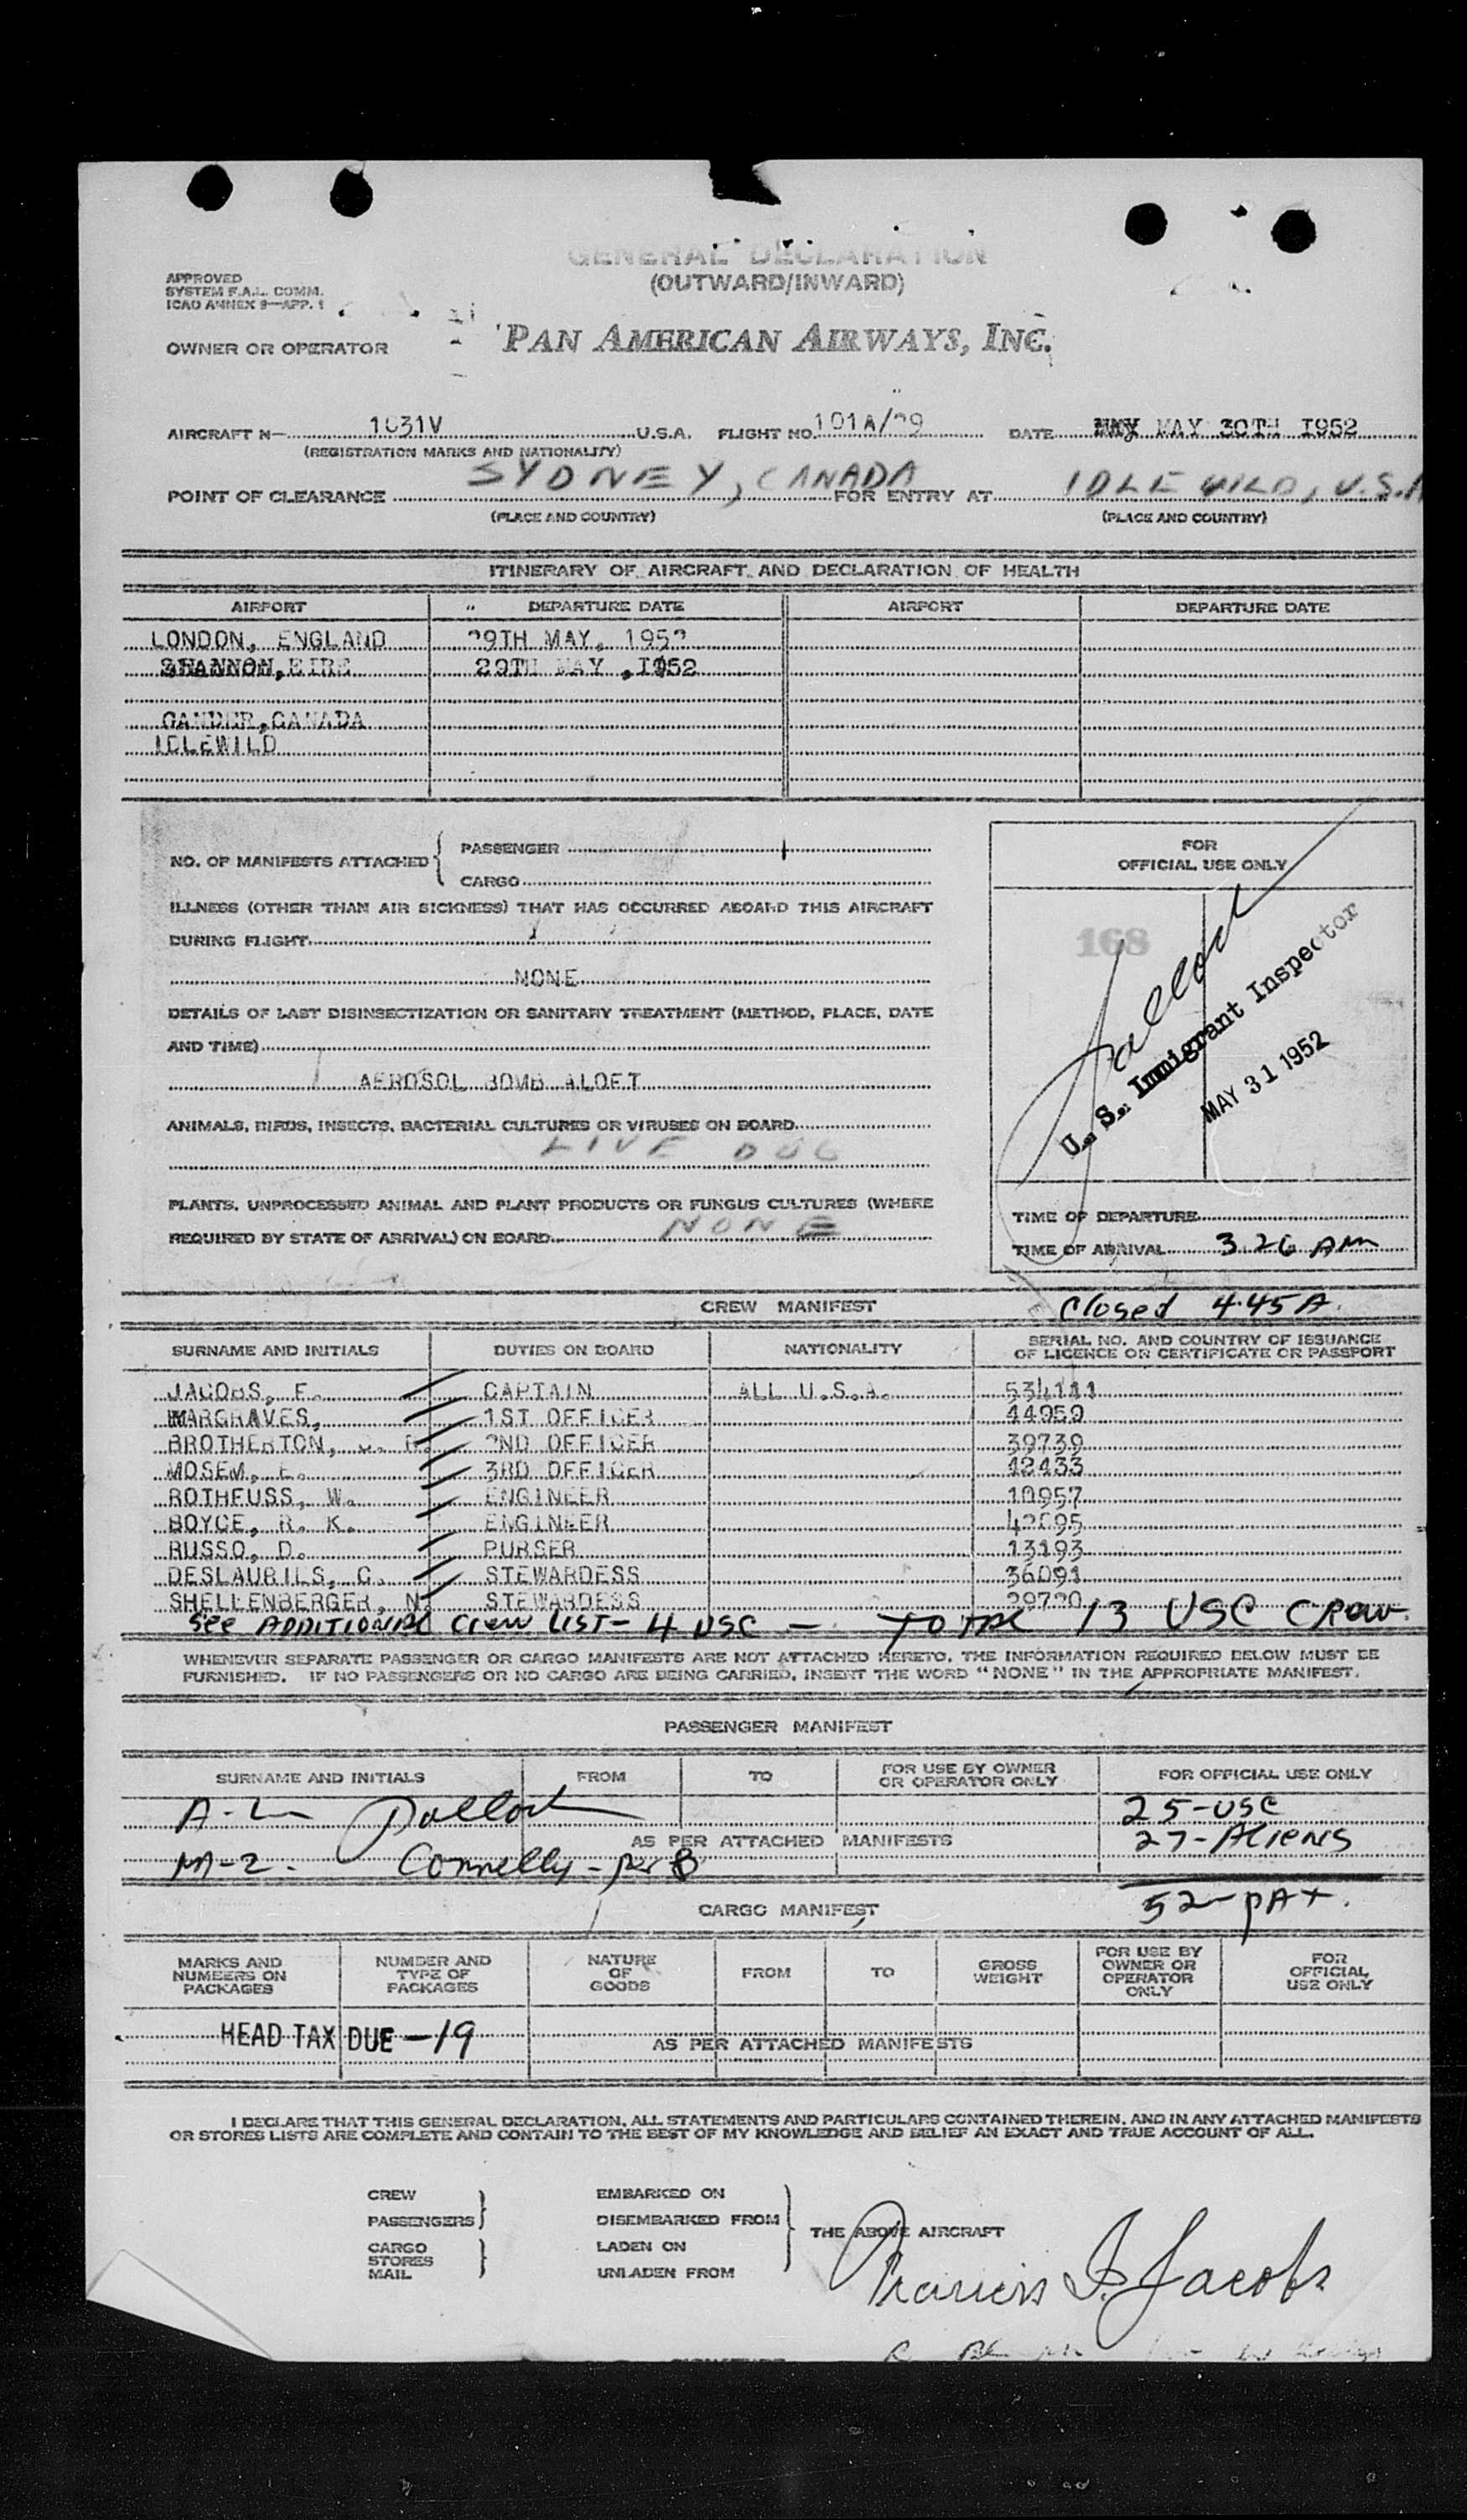 GENERAL DECLARATION
(OUTWARD/INWARD)
APPROVED
SYSTEM F.A.L. COMM.
ICAO ANNEX 9—APP. 1
OWNER OR OPERATOR PAN AMERICAN AIRWAYS, INC.
AIRCRAFT N— 1031V U.S.A. FLIGHT NO. 101A/29 DATE MAY 30TH 1952
(REGISTRATION MARKS AND NATIONALITY)
POINT OF CLEARANCE SYDNEY, CANADA FOR ENTRY AT IDLEWILD, U.S.A
(PLACE AND COUNTRY) (PLACE AND COUNTRY)
ITINERARY OF AIRCRAFT AND DECLARATION OF HEALTH
AIRPORT DEPARTURE DATE AIRPORT DEPARTURE DATE
LONDON, ENGLAND 29TH MAY, 1952
SHANNON, EIRE 29TH MAY, 1952
GANDER, CANADA
IDLEWILD
NO. OF MANIFESTS ATTACHED
PASSENGER 1
CARGO
ILLNESS (OTHER THAN AIR SICKNESS) THAT HAS OCCURRED ABOARD THIS AIRCRAFT
DURING FLIGHT
NONE
DETAILS OF LAST DISINSECTIZATION OR SANITARY TREATMENT (METHOD, PLACE, DATE
AND TIME)
AEROSOL BOMB ALOFT
ANIMALS, BIRDS, INSECTS, BACTERIAL CULTURES OR VIRUSES ON BOARD
LIVE DOG
PLANTS, UNPROCESSED ANIMAL AND PLANT PRODUCTS OR FUNGUS CULTURES (WHERE
REQUIRED BY STATE OF ARRIVAL) ON BOARD NONE
FOR
OFFICIAL USE ONLY
168
U. S. Immigrant Inspector
MAY 31 1952
TIME OF DEPARTURE
TIME OF ARRIVAL 3.26 AM
Closed 4.45 A.
CREW MANIFEST
SURNAME AND INITIALS DUTIES ON BOARD NATIONALITY SERIAL NO. AND COUNTRY OF ISSUANCE
OF LICENCE OR CERTIFICATE OR PASSPORT
JACOBS, F. CAPTAIN ALL U.S.A. 534111
HARGRAVES, 1ST OFFICER 44959
BROTHERTON, 2ND OFFICER 39739
MOSEM, E. 3RD OFFICER 42433
ROTHFUSS, W. ENGINEER 10957
BOYCE, R. K. ENGINEER 42095
RUSSO, D. PURSER 13193
DESLAURILS, C. STEWARDESS 36091
SHELLENBERGER, N. STEWARDESS 29720
See ADDITIONAL Crew LIST - 4 USC — TOTAL 13 USC Crew.
WHENEVER SEPARATE PASSENGER OR CARGO MANIFESTS ARE NOT ATTACHED HERETO, THE INFORMATION REQUIRED BELOW MUST BE
FURNISHED. IF NO PASSENGERS OR NO CARGO ARE BEING CARRIED, INSERT THE WORD "NONE" IN THE APPROPRIATE MANIFEST.
PASSENGER MANIFEST
SURNAME AND INITIALS FROM TO FOR USE BY OWNER
OR OPERATOR ONLY FOR OFFICIAL USE ONLY
25-USC
AS PER ATTACHED MANIFESTS 27-Aliens
MA-2. Connelly - per B
52-PAX.
CARGO MANIFEST
MARKS AND
NUMBERS ON
PACKAGES NUMBER AND
TYPE OF
PACKAGES NATURE
OF
GOODS FROM TO GROSS
WEIGHT FOR USE BY
OWNER OR
OPERATOR
ONLY FOR
OFFICIAL
USE ONLY
HEAD TAX DUE —19
AS PER ATTACHED MANIFESTS
I DECLARE THAT THIS GENERAL DECLARATION, ALL STATEMENTS AND PARTICULARS CONTAINED THEREIN, AND IN ANY ATTACHED MANIFESTS
OR STORES LISTS ARE COMPLETE AND CONTAIN TO THE BEST OF MY KNOWLEDGE AND BELIEF AN EXACT AND TRUE ACCOUNT OF ALL.
CREW
PASSENGERS
CARGO
STORES
MAIL
EMBARKED ON
DISEMBARKED FROM
LADEN ON
UNLADEN FROM
THE ABOVE AIRCRAFT
Francis J. Jacobs